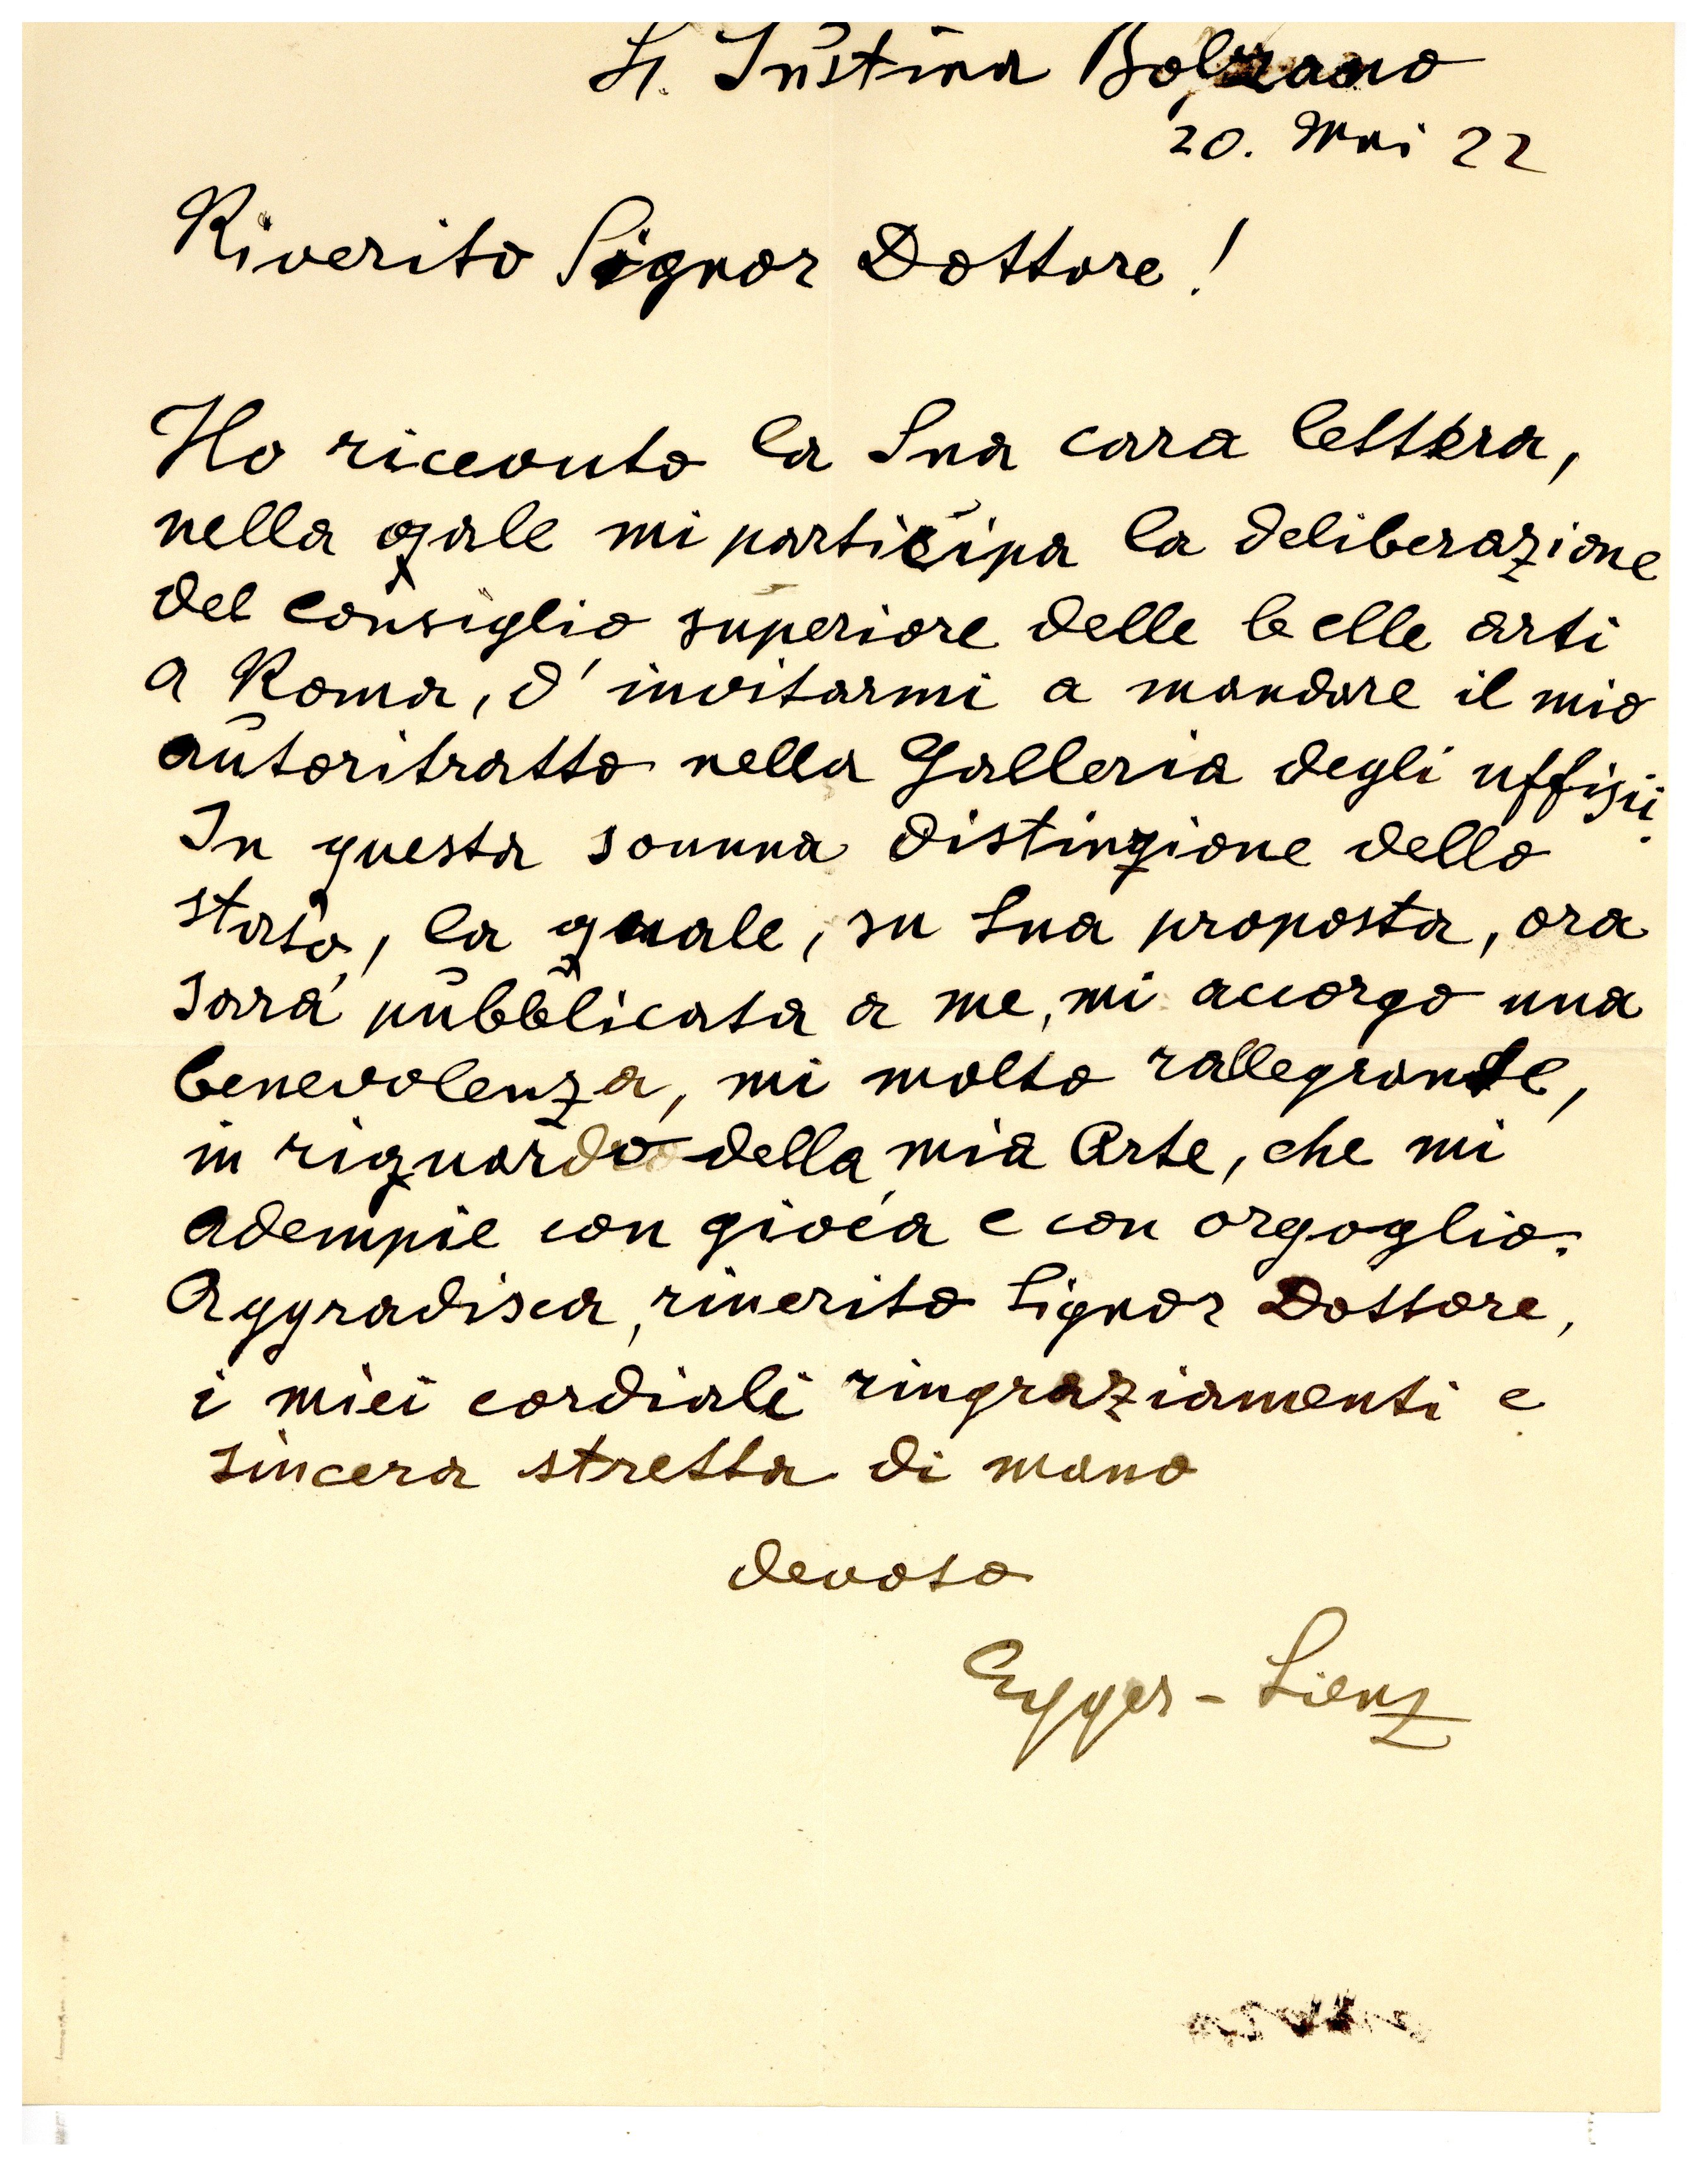 St. Justina Bolzano
20. Mai 22
Riverito Signor Dottore!
Ho ricevuto la Sua cara lettera,
nella qale mi participa la deliberazione
del consiglio superiore delle belle arti
a Roma, d' invitarmi a mandare il mio
autoritratto nella Galleria degli uffizii.
In questa somma distinzione dello
stato, la quale, su Sua proposta, ora
sará pubblicata a me, mi accorgo una
benevolenza, mi molto rallegrante,
in riguardo della mia Arte, che mi
adempie con gioia e con orgoglio.
Aggradisca, riverito Signor Dottore,
i miei cordiali ringraziamenti e
sincera stretta di mano
devoto
Egger-Lienz